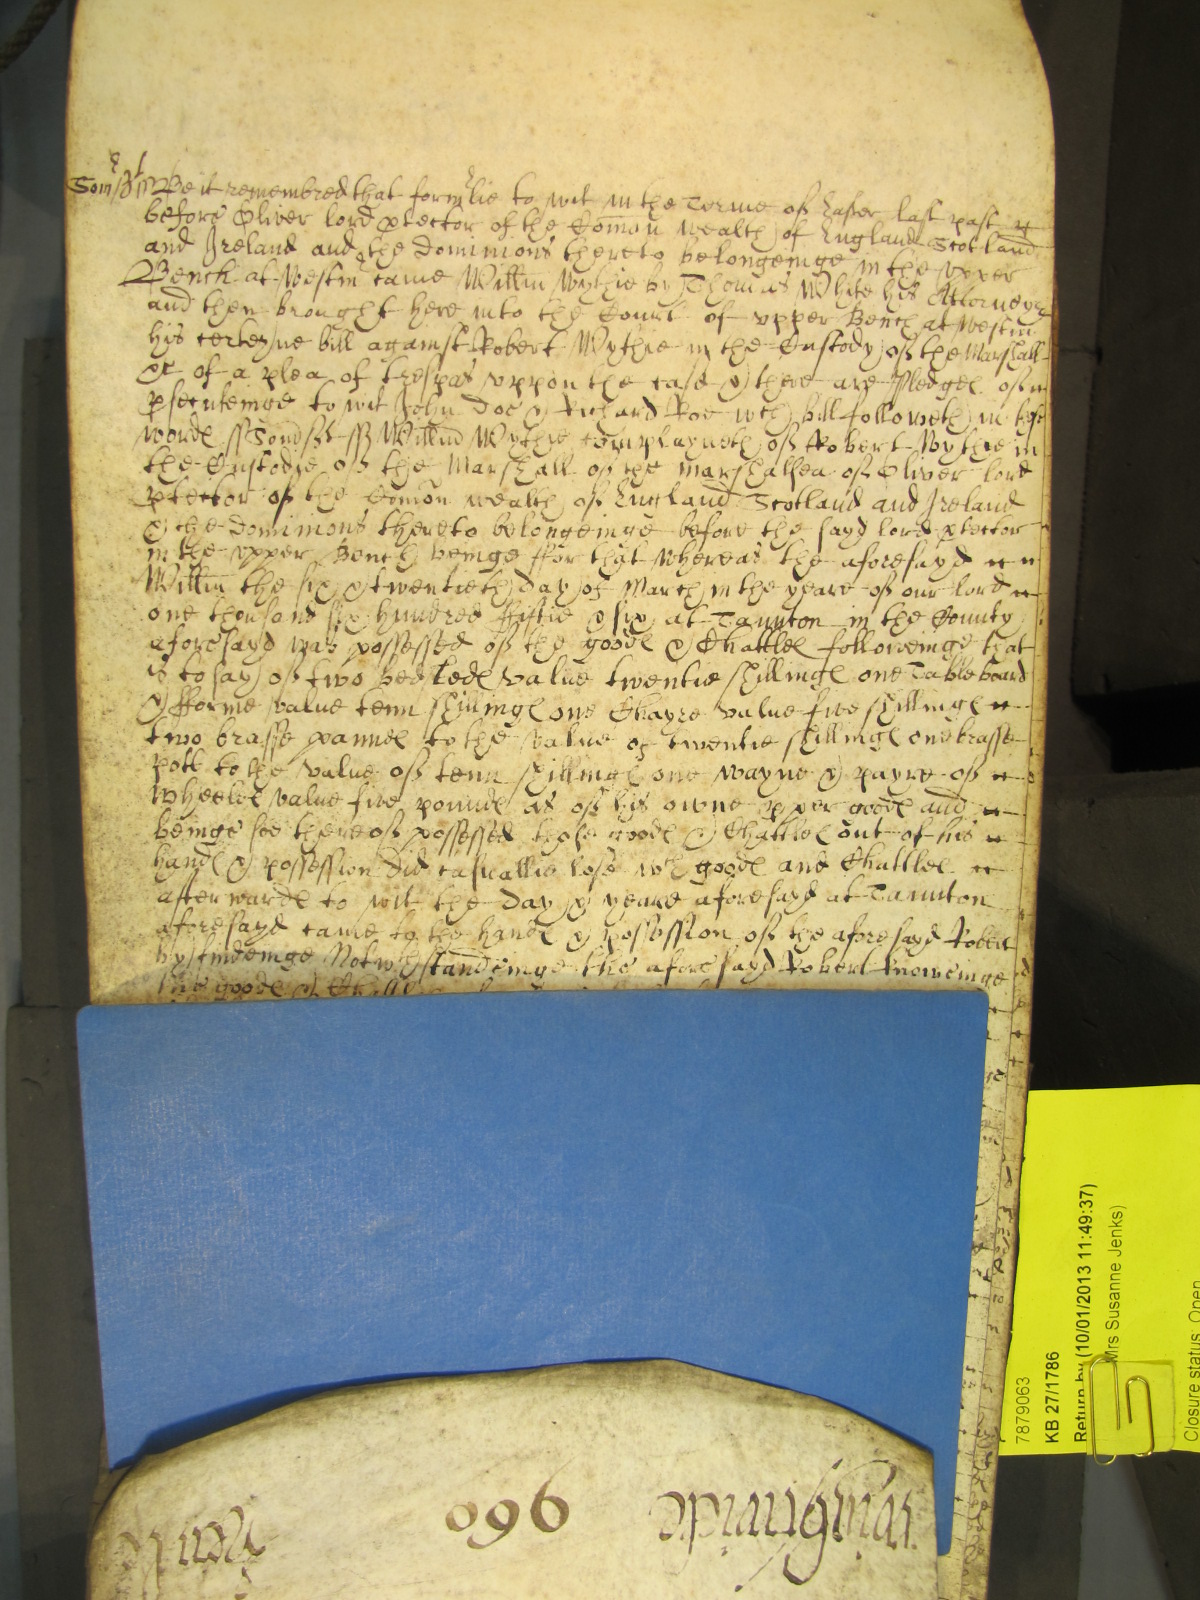 Som̃s̃ ss Be it remembred that form̃lie to wit in the Terme of Easter last past
before Oliver lord p̱tector of the Com̃on wealth of England Scotland
and Ireland and the dominions thereto belongeinge in the vpper
Bench at Westm̃ came Willm̃ Wythie by Thomas White his Attorney
and then brought here into the Court of vpper Bench at Westm̃
his certeyne bill against Robert Wythie in the Custody of the Marshall
&c of a plea of trespas vppon the case & there are Pledges of
p̱secuteinge to wit John Doe & Richard Roe wch bill followeth in these
words ss Som̃s̃ss ss Willm̃ Wythie complayneth of Robert Wythie in
the Custodie of the Marshall of the Marshalsea of Oliver lord
p̱tector of the Com̃on wealth of England Scotland and Ireland
& the dominions thereto belongeinge before the sayd lord p̱tector
in the vpper Bench beinge ffor that whereas the aforesayd
Willm̃ the six & twentieth day of March in the yeare of our lord
one thousand six hundred fiftie & six at Taunton in the County
aforesayd was possessed of the goods & Chattles followeinge that
is to say of two bedsteds value twentie shillings one Tableboard
& fforme value tenn shillings one Chayre value five shillings
two brasse pannes to the value of twentie shillings one brasse
pott to the value of tenn shillings one wayne & payre of
wheeles value five pounds as of his owne p̱per goods and
beinge soe thereof possessed those goods & Chattles out of his
hands & possession did casuallie lose wch goods and Chattles
afterwards to wit the day & yeare aforesayd at Taunton
aforesayd came to the hands & possession of the aforesayd Robert
by findeinge Notwthstandeinge the aforesayd Robert knoweinge
the goods &
960
7879063
KB 27/1786
Return by (10/01/2013 11:49:37)
Mrs Susanne Jenks)
Closure status: Open